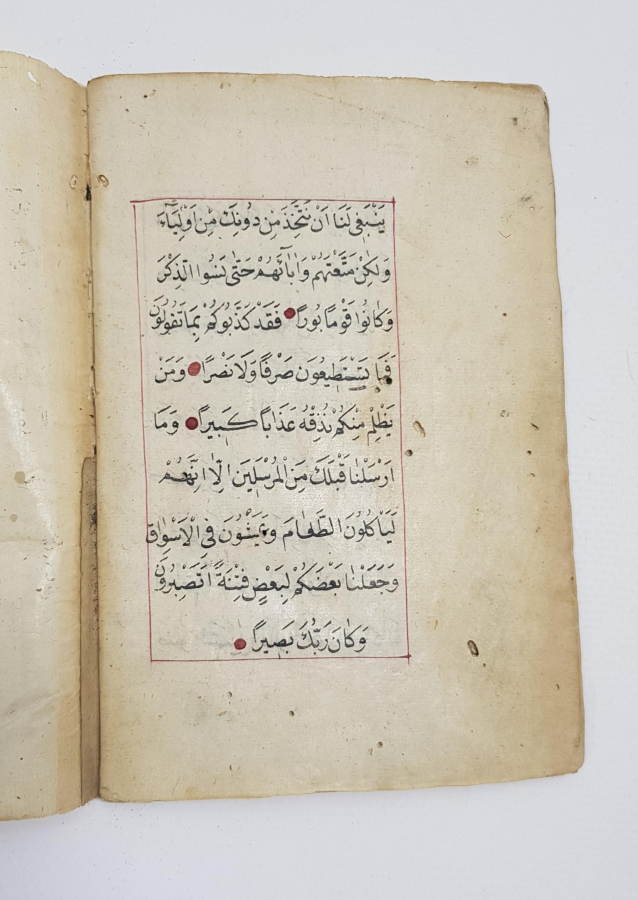 يَنْبَغِي لَنَا اَنْ نَتَّخِذَ مِنْ دُونِكَ مِنْ اَوْلِيَاءَ
وَلٰكِنْ مَتَّعْتَهُمْ وَاٰبَاءَهُمْ حَتّٰى نَسُوا الذِّكْرَ
وَكَانُوا قَوْمًا بُورًا فَقَدْ كَذَّبُوكُمْ بِمَا تَقُولُونَ
فَمَا تَسْتَطِيعُونَ صَرْفًا وَلَا نَصْرًا وَمَنْ
يَظْلِمْ مِنْكُمْ نُذِقْهُ عَذَابًا كَبِيرًا وَمَا
اَرْسَلْنَا قَبْلَكَ مِنَ الْمُرْسَلِينَ اِلَّا اِنَّهُمْ
لَيَاْكُلُونَ الطَّعَامَ وَيَمْشُونَ فِي الْاَسْوَاقِ
وَجَعَلْنَا بَعْضَكُمْ لِبَعْضٍ فِتْنَةً اَتَصْبِرُونَ
وَكَانَ رَبُّكَ بَصِيرًا